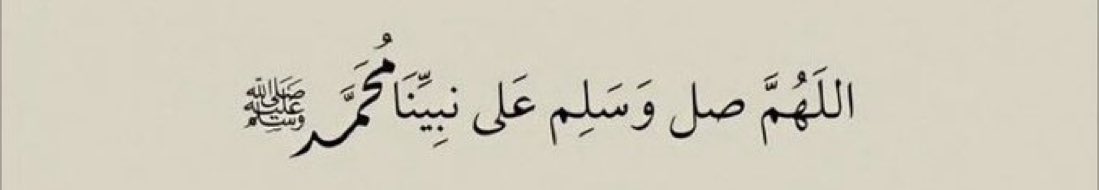 اللَهُمَّ صل وَسَلِم عَلى نبِيِّنَا مُحَمَّد ﷺ